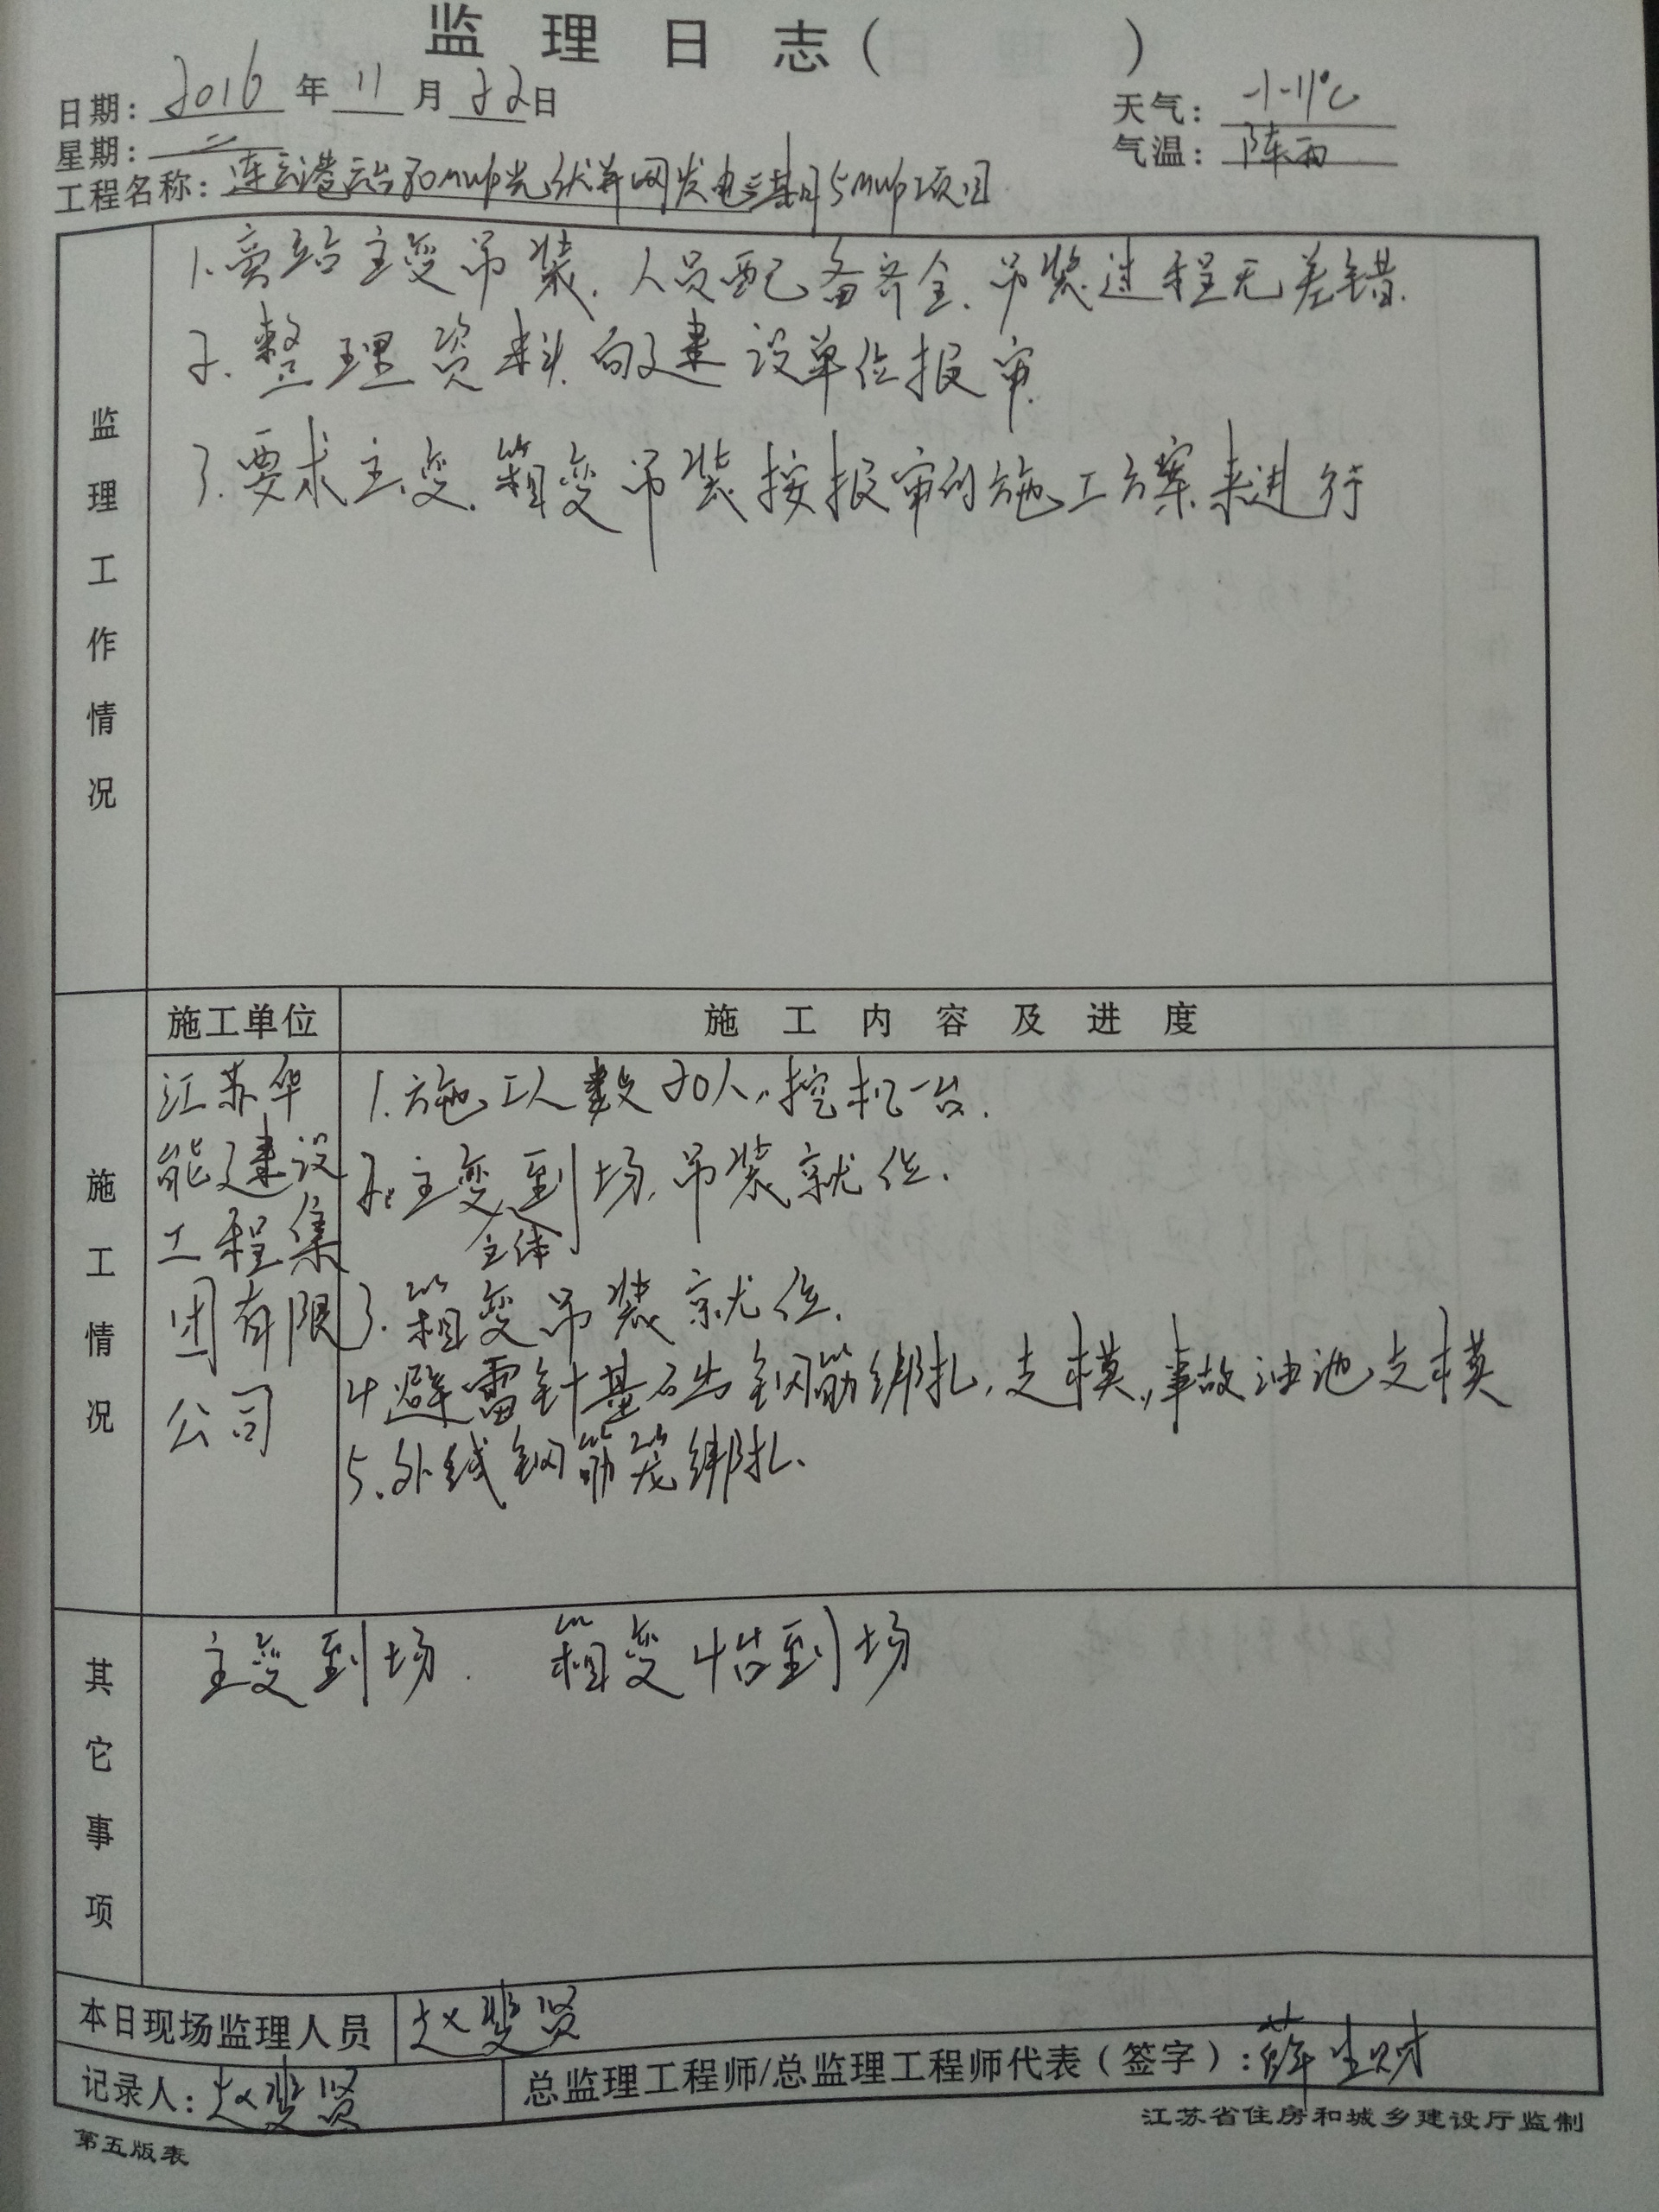 监理日志( )
日期: 2016 年 11 月 22 日
天气: -1-11℃
星期: 二
气温: 阵雨
工程名称: 连云港云台30MWp光伏并网发电三期5MWp项目
监理工作情况
1.旁站主变吊装.人员配备齐全.吊装过程无差错.
2.整理资料.向建设单位报审.
3.要求主变.箱变吊装按报审的施工方案来进行
施工情况
施工单位
施工内容及进度
江苏华
能建设
工程集
团有限
公司
1.施工人数20人,挖机一台.
2.主变到场.吊装就位.
主体
3.箱变吊装就位.
4.避雷针基础钢筋绑扎,支模,事故油池支模
5.外线钢筋笼绑扎.
其它事项
主变到场. 箱变4台到场
本日现场监理人员
赵斐贤
记录人:赵斐贤
总监理工程师/总监理工程师代表(签字):薛生财
江苏省住房和城乡建设厅监制
第五版表